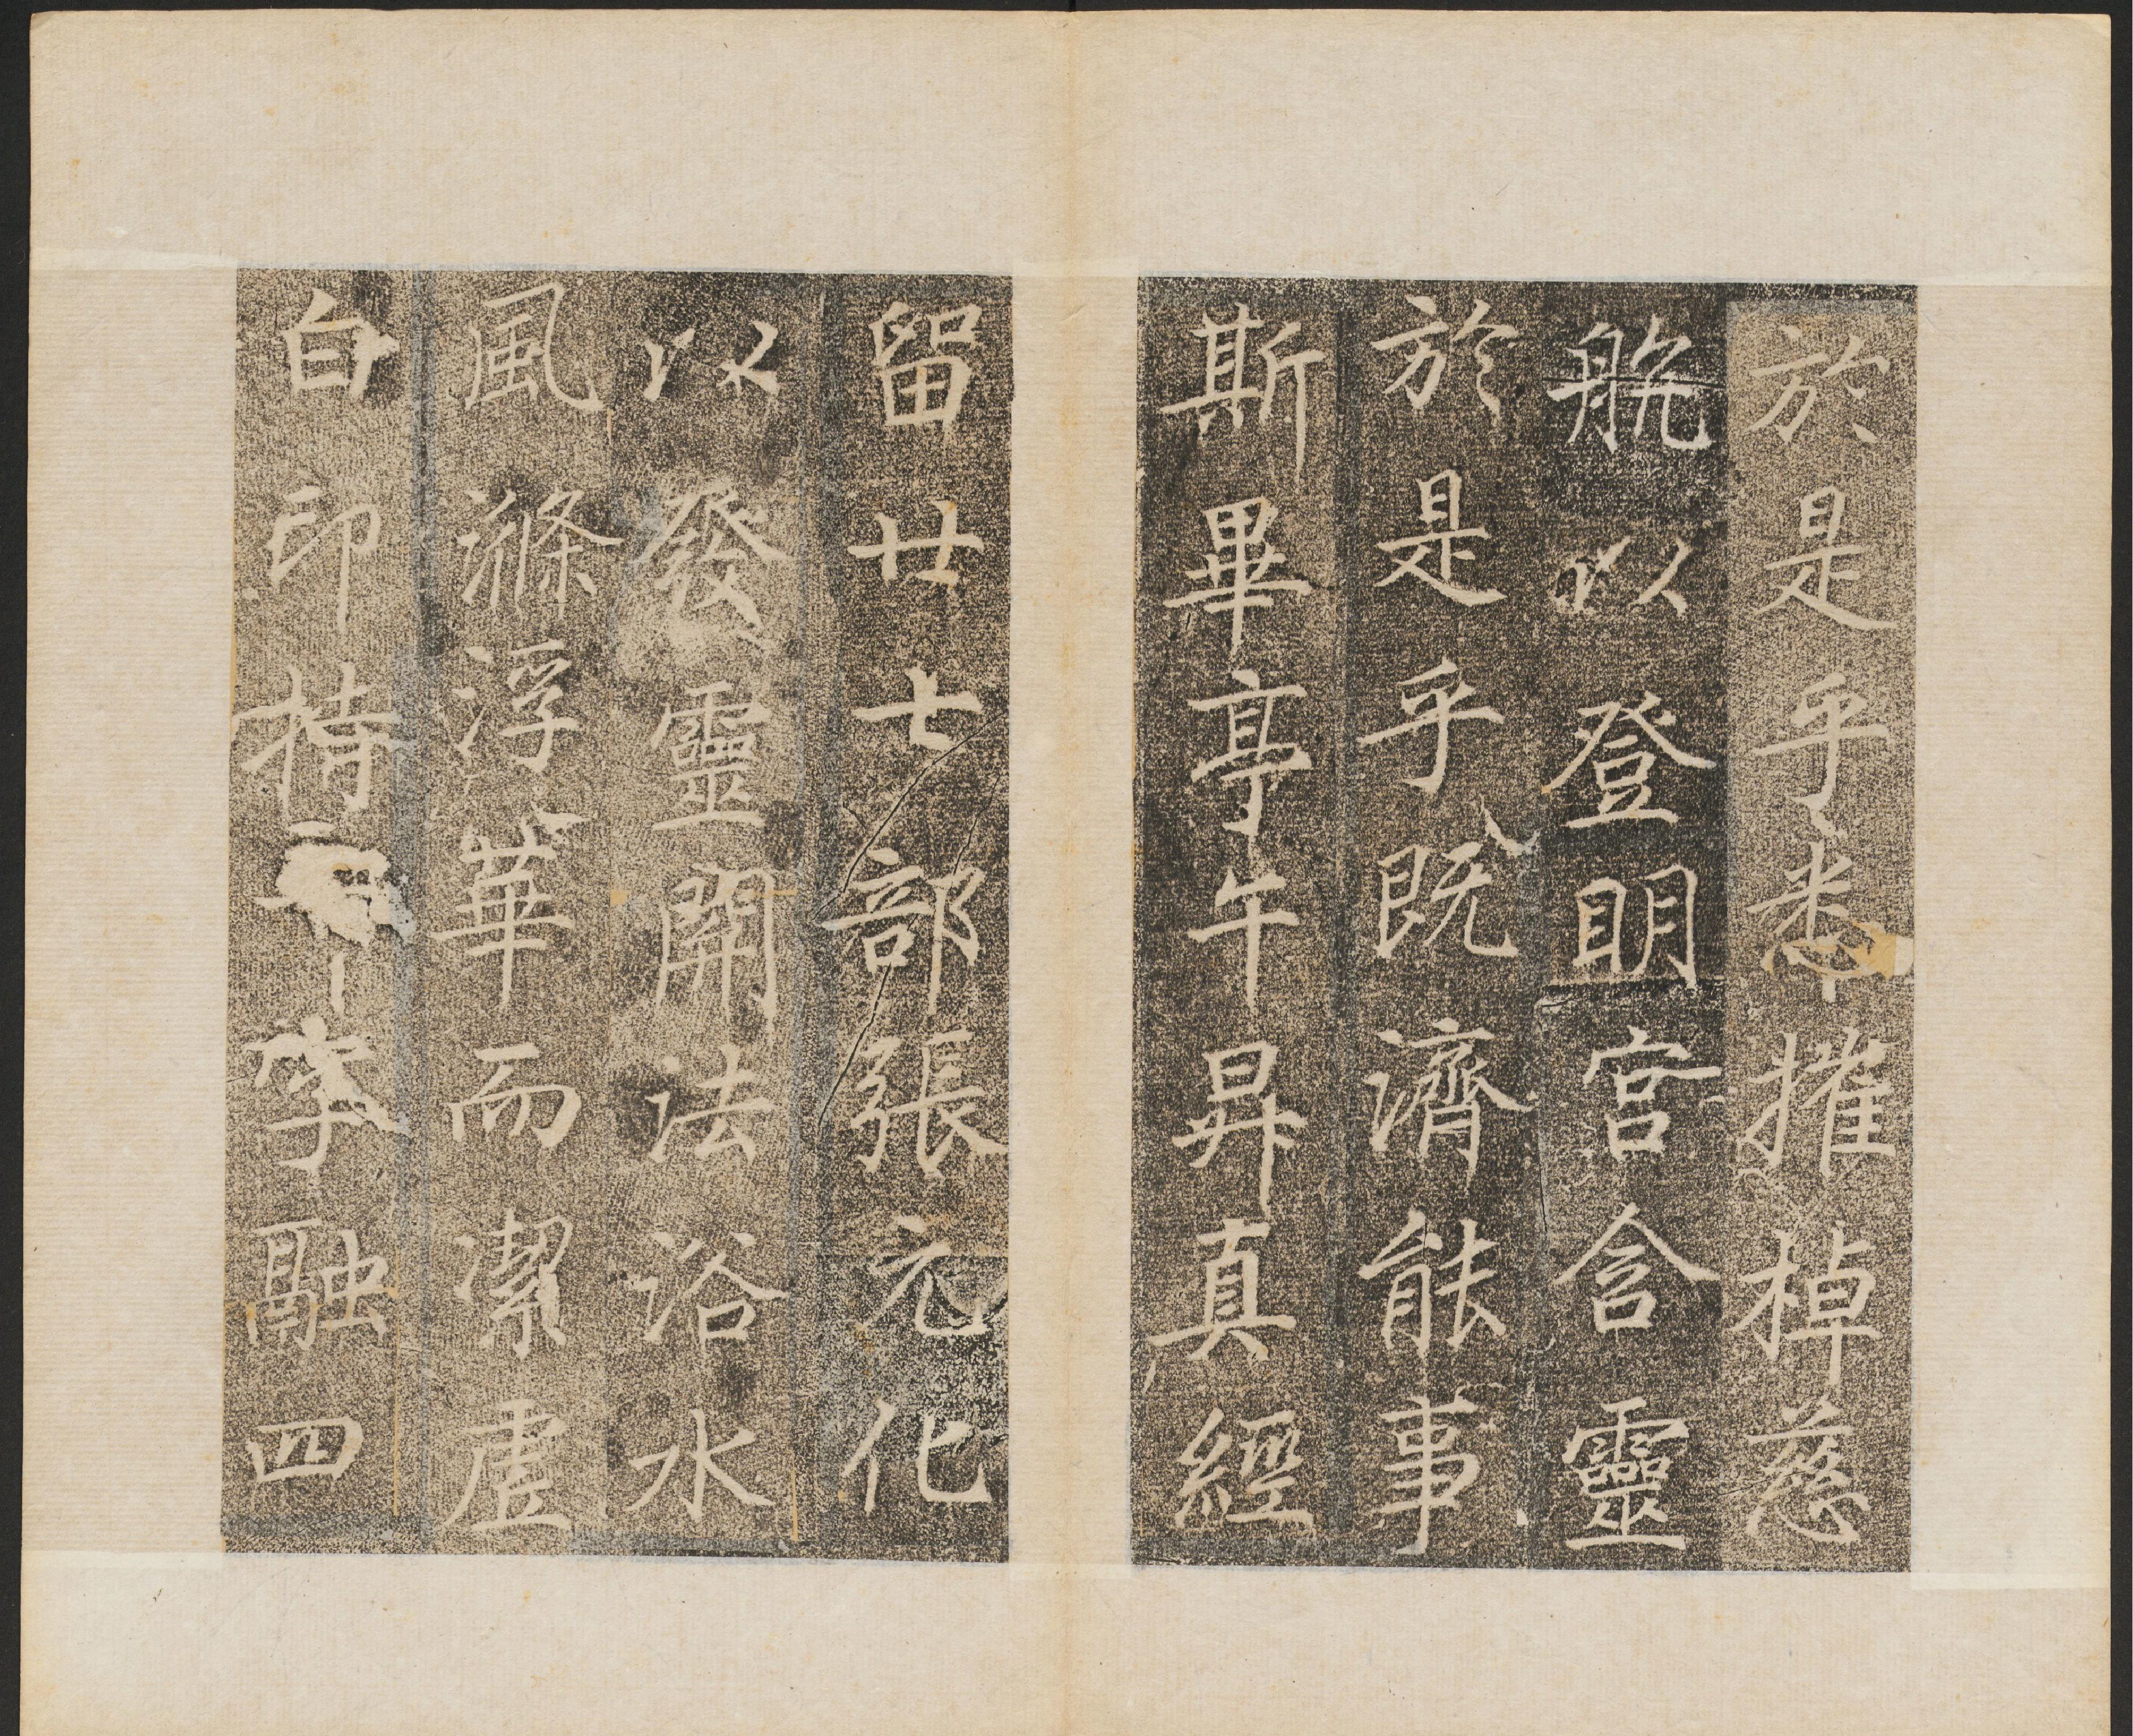 於是乎悉摧棹慈
航以登明宮含靈
於是乎既濟能事
斯畢亭午昇真經
留廿七部張元化
以發靈開法浴水
風滌浮華而潔虛
白印持字融四